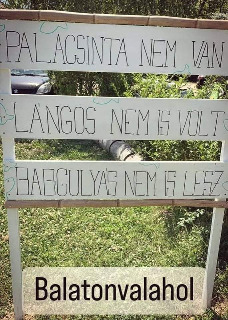 PALACSINTA NEM VAN
LÁNGOS NEM IS VOLT
BABGULYÁS NEM IS LESZ
Balatonvalahol